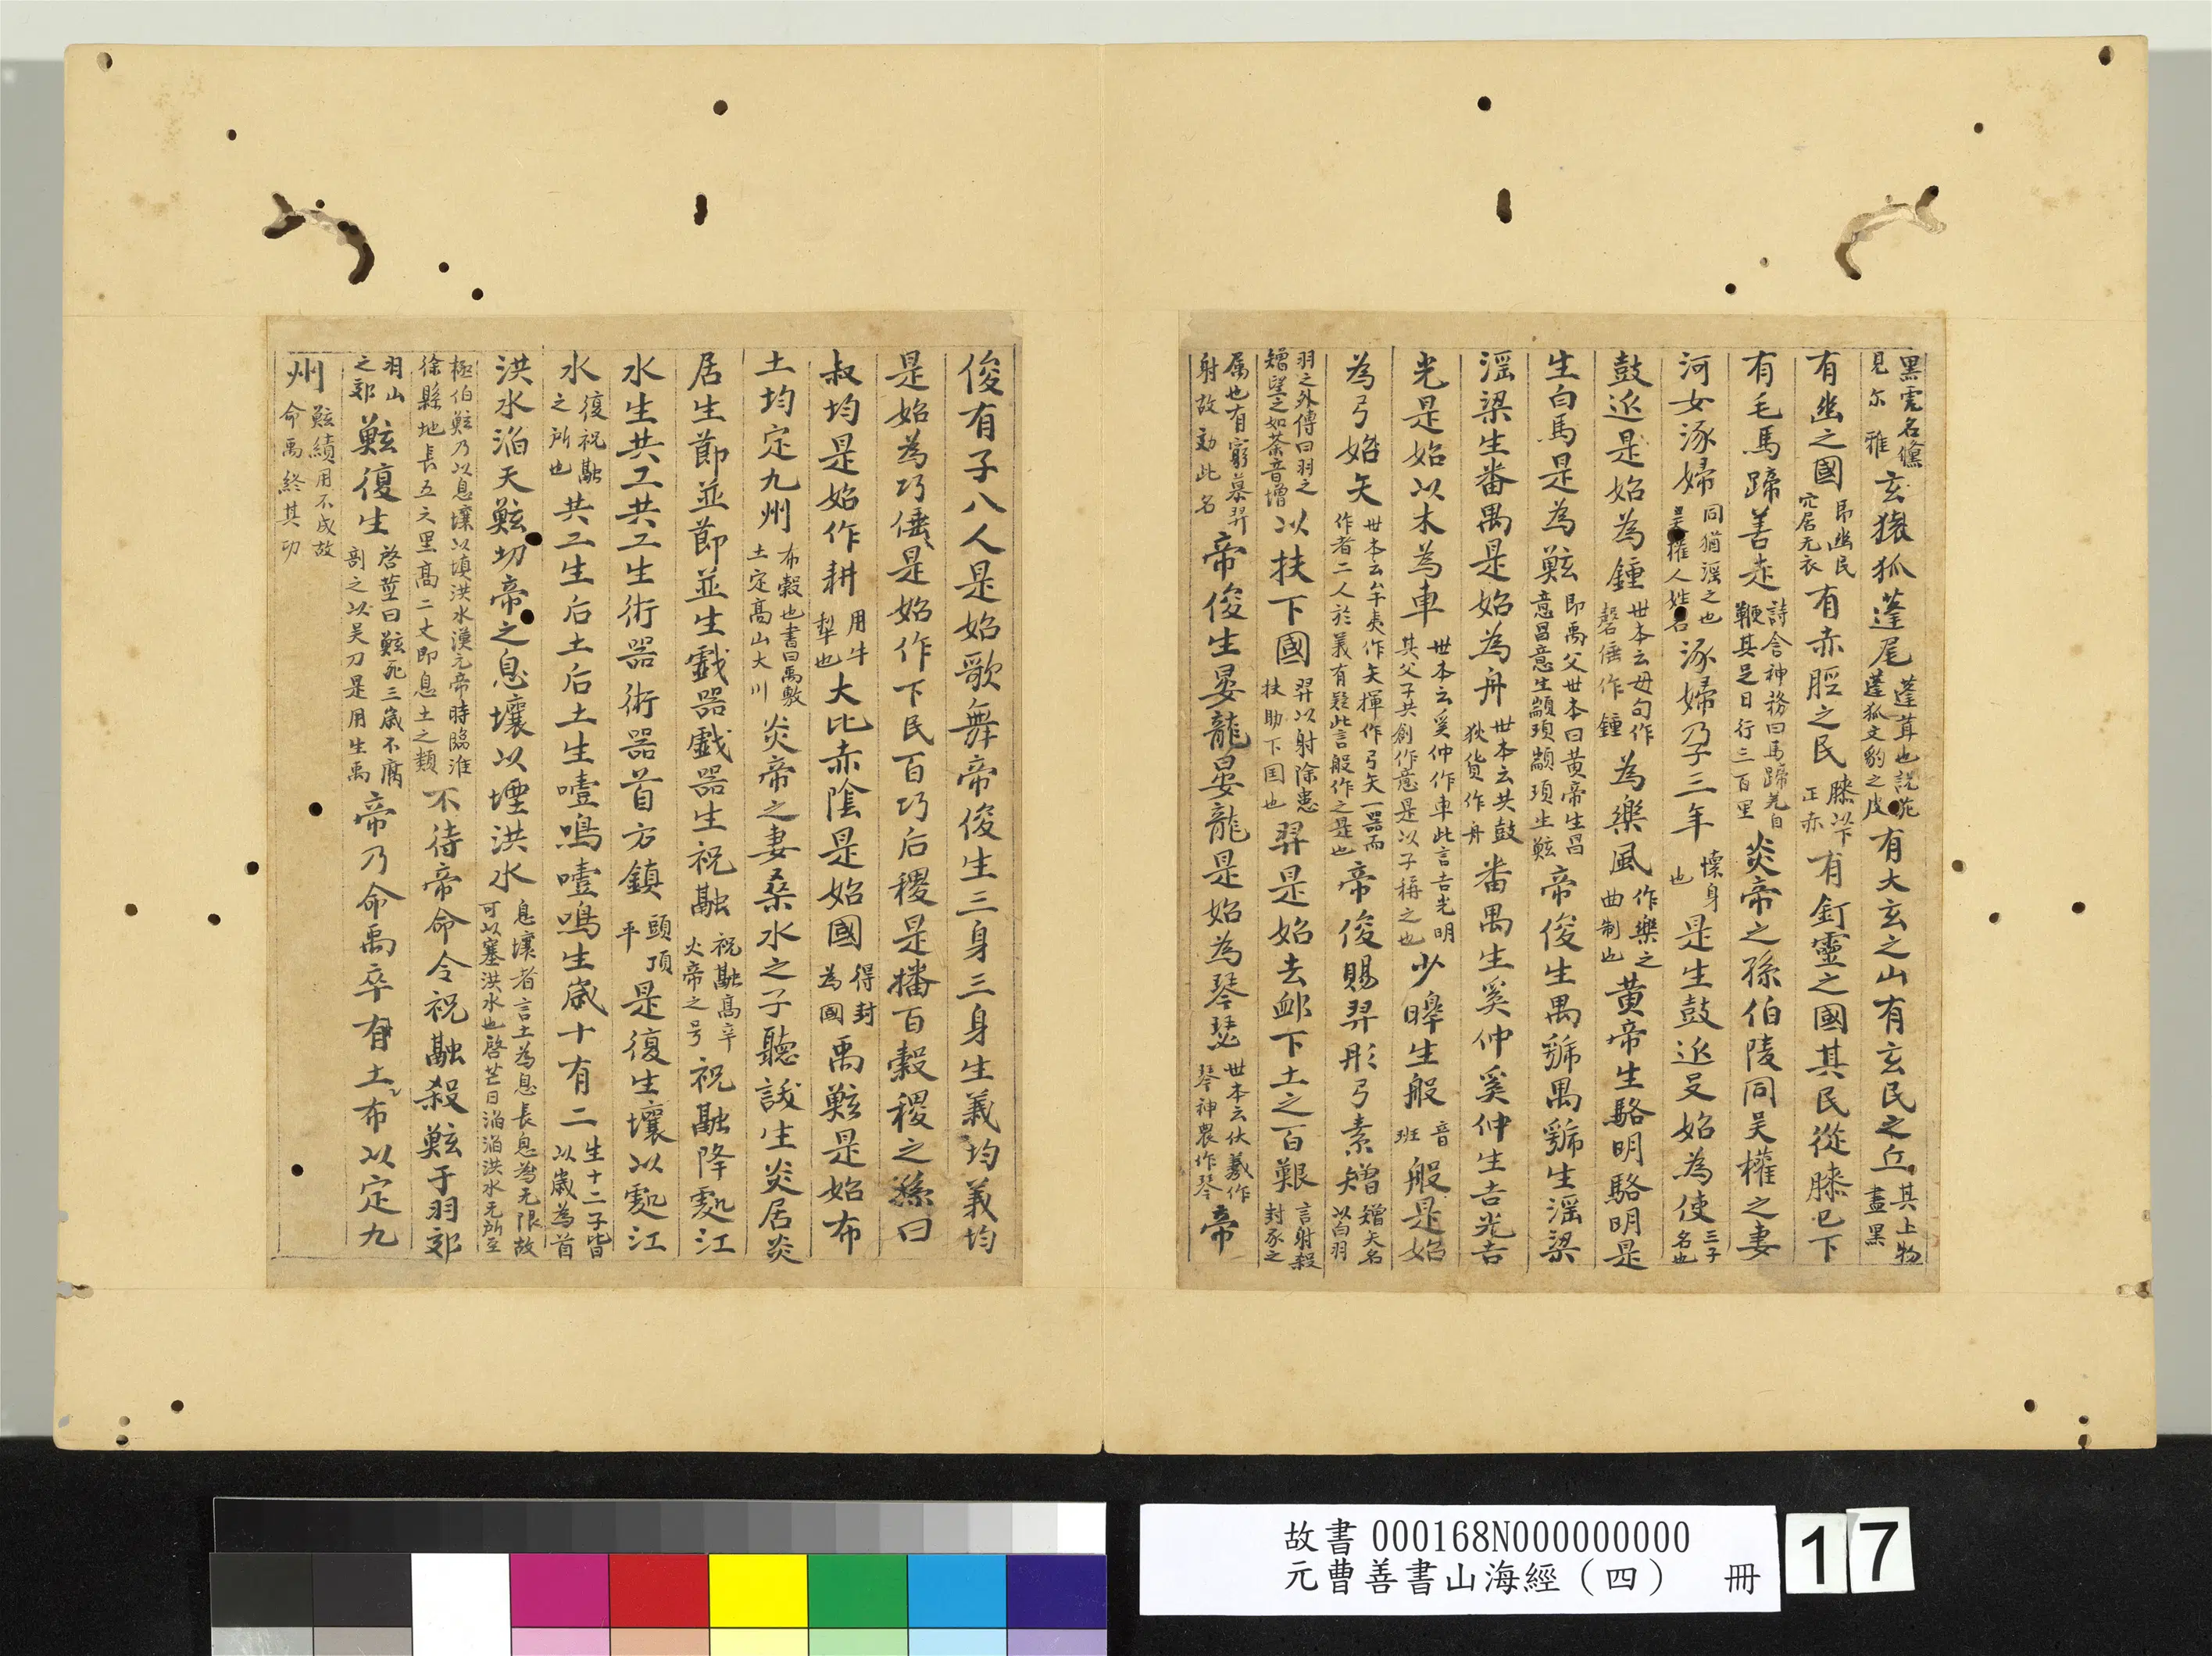 黑虎名虪見尔雅玄猿狐蓬尾蓬茸也說苑蓬狐文豹之皮有大玄之山有玄民之丘其上物盡黑
有幽之國即幽民穴居无衣有赤脛之民膝以下正赤有釘靈之國其民從膝已下
有毛馬蹄善走詩含神務曰馬蹄羌自鞭其足日行三百里炎帝之孫伯陵同吴權之妻
河女涿婦同猶滛之也吴權人姓名涿婦乃子三年懷身也是生鼓延殳始為使三子名也
鼓延是始為鍾世本云毋句作磬倕作鍾為樂風作樂之曲制也黄帝生駱明駱明是
生白馬是為鮌即禹父世本曰黄帝生昌意昌意生顓頊顓頊生鮌帝俊生禺號禺號生滛梁
滛梁生番禺是始為舟世本云共鼓狄貨作舟番禺生奚仲奚仲生吉光吉
光是始以木為車世本云奚仲作車此言吉光明其父子共創作意是以子稱之也少皞生般音班般是始
為弓始矢世本云牟夷作矢揮作弓矢一器而作者二人於義有疑此言般作之是也帝俊賜羿彤弓素矰矰矢名以白羽
羽之外傳曰羽之矰望之如荼音增以扶下國羿以射除患扶助下国也羿是始去卹下土之百艱言射殺封豕之
属也有窮慕羿射故効此名帝俊生晏龍晏龍是始為琴瑟世本云伏羲作琴神農作琴帝
俊有子八人是始歌舞帝俊生三身三身生義均義均
是始為巧倕是始作下民百巧后稷是播百穀稷之孫曰
叔均是始作耕用牛犁也大比赤陰是始國得封為國禹鮌是始布
土均定九州布穀也書曰禹敷土定高山大川炎帝之妻桑水之子聽詙生炎居炎
居生節並節並生戲器戲器生祝融祝融高辛火帝之号祝融降處江
水生共工共工生術器術器首方鎮頭頂平是復生壤以處江
水復祝融之所也共工生后土后土生噎鳴噎鳴生歲十有二生十二子皆以歲為首
洪水滔天鮌切帝之息壤以堙洪水息壤者言土為息長息為无限故可以塞洪水也啓茫曰滔滔洪水无所至
極伯鮌乃以息壤以填洪水漢元帝時臨淮徐縣地長五六里高二丈即息土之類不待帝命令祝融殺鮌于羽郊
羽山之郊鮌復生啓莁曰鮌死三歲不腐剖之以吴刀是用生禹帝乃命禹卒有土布以定九
州鮌績用不成故命禹終其功
故書 000168N000000000
元曹善書山海經（四） 冊
17